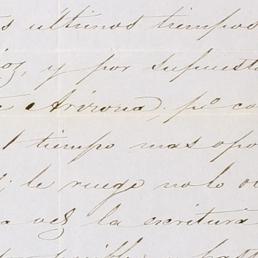 s ultimos tiempos
y por supuesto
Arizona; pº co
l tiempo mas opo
le ruego no lo o
a vez la escritura